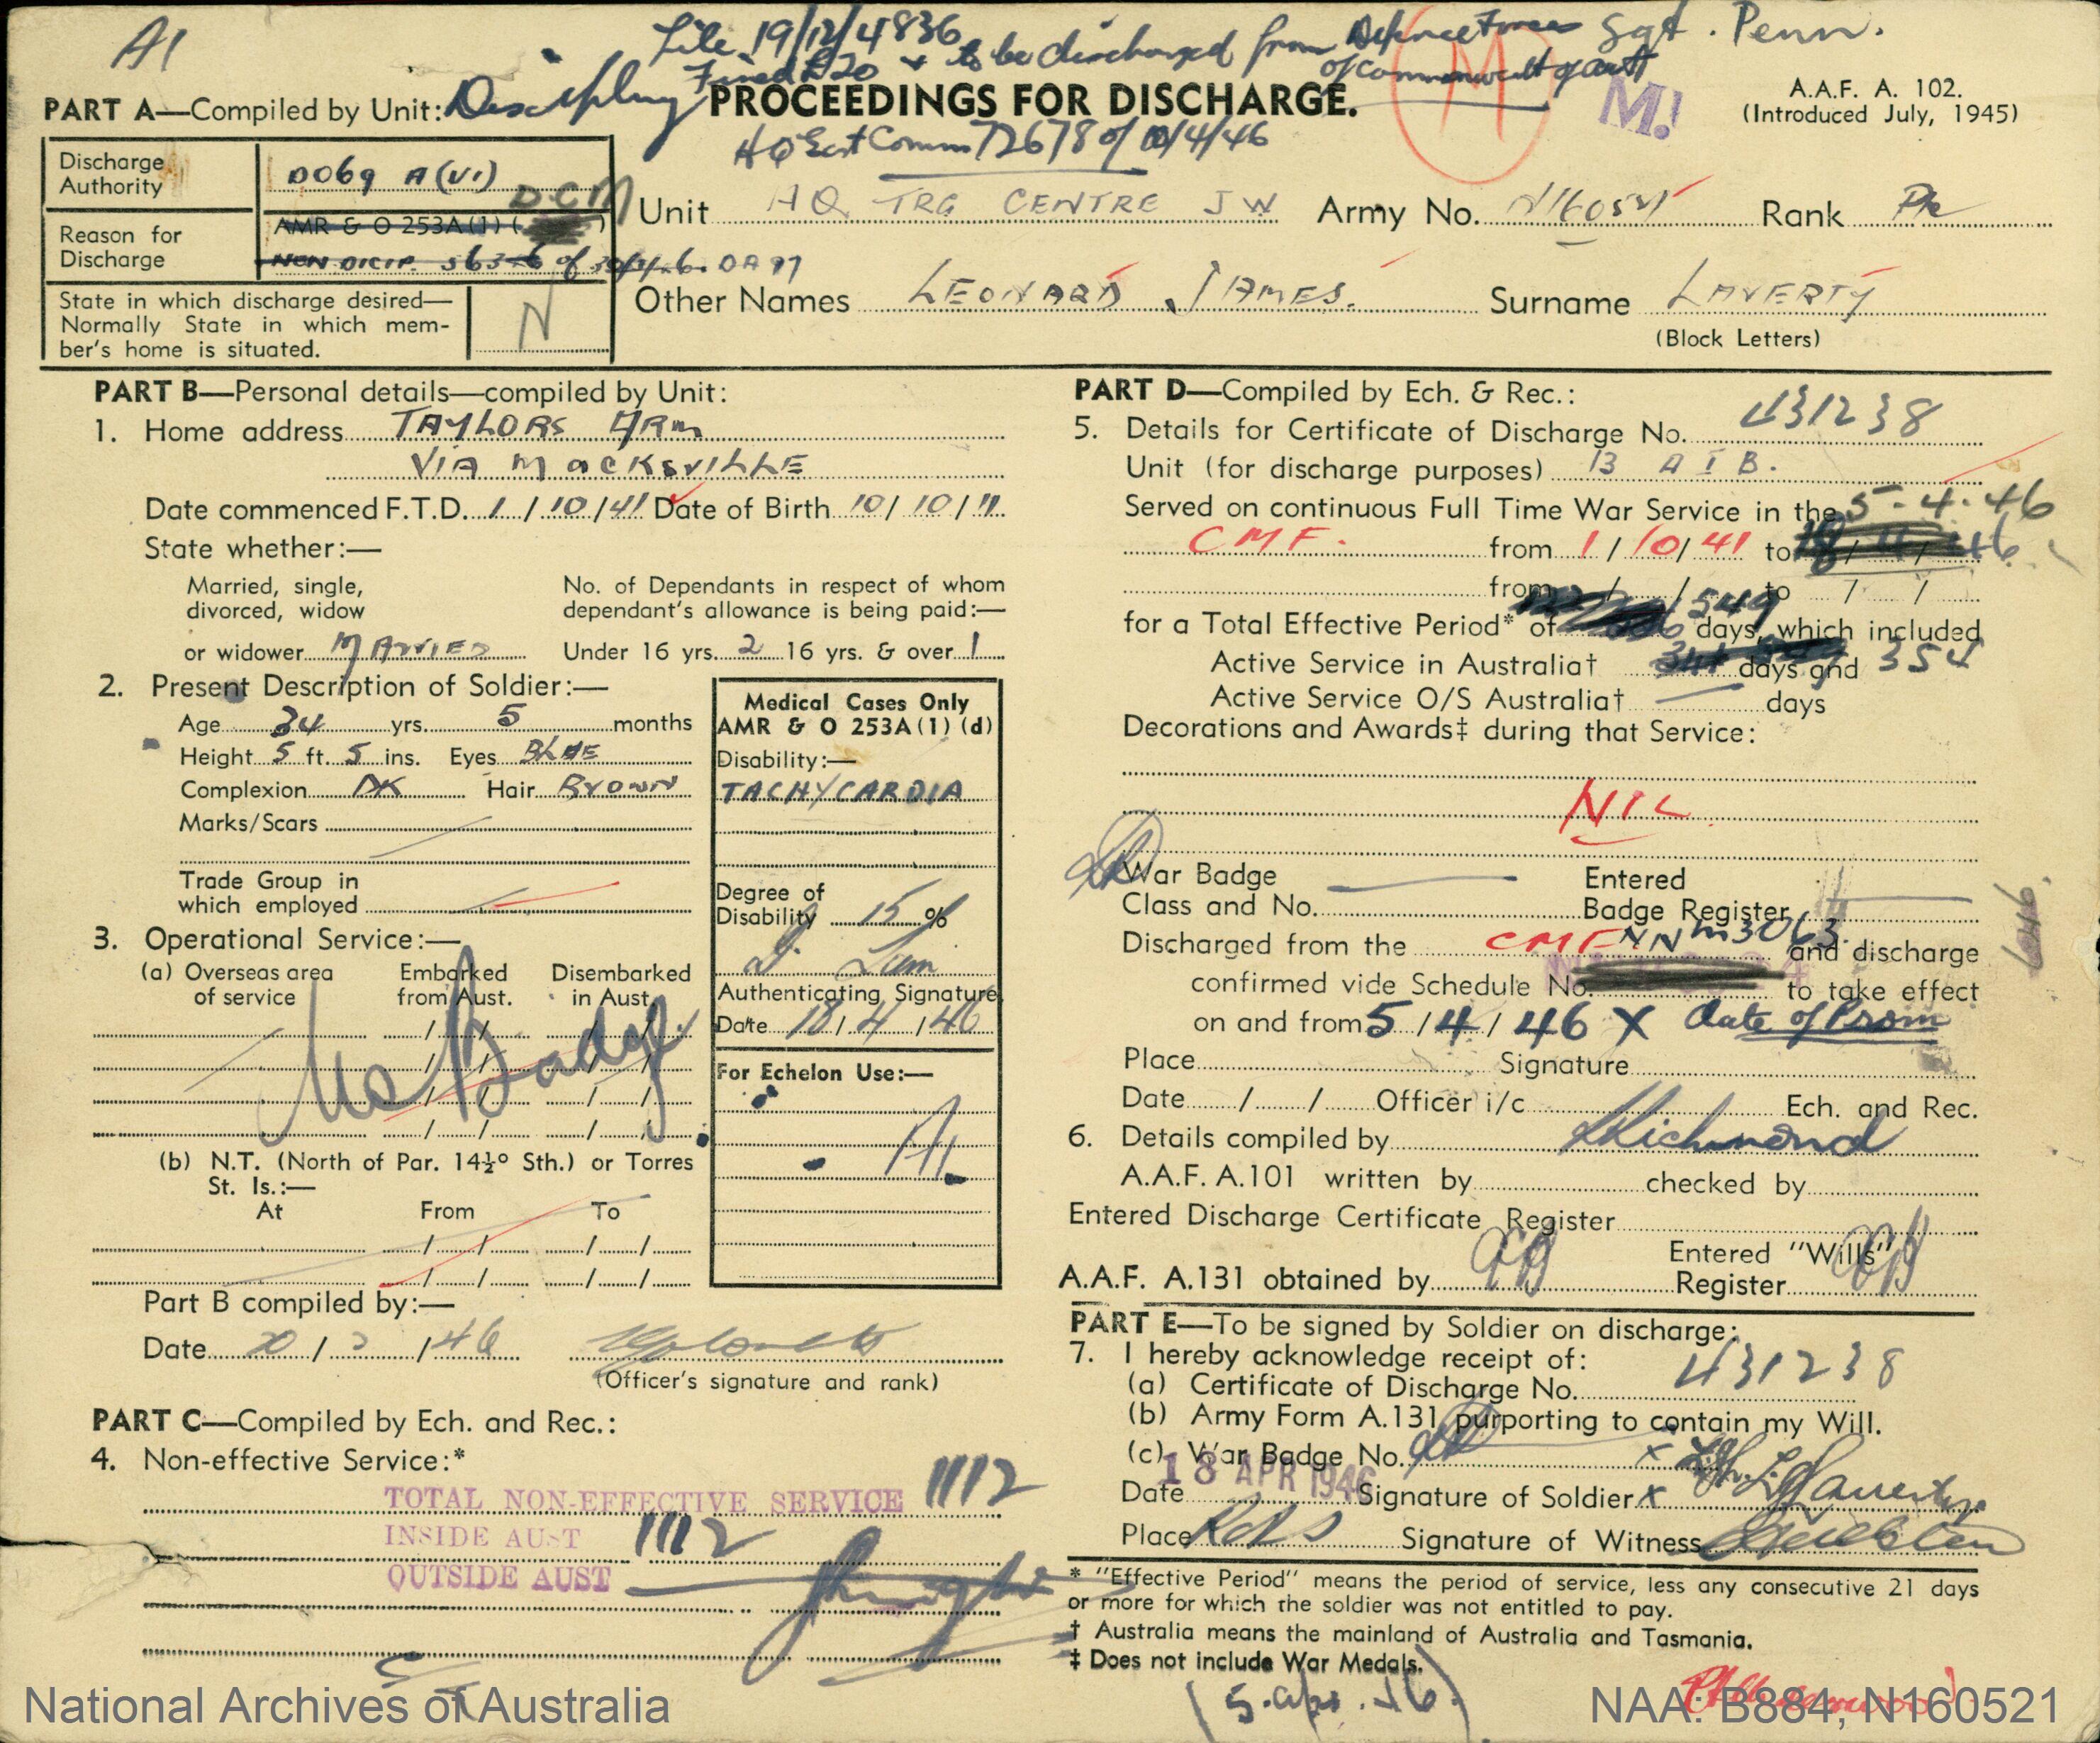 A1
File 19/12/4836 Sgt. Penn.
Fined £20 + to be discharged from Defence Forces
of Commonwealth of Aust
PART A—Compiled by Unit:
PROCEEDINGS FOR DISCHARGE.
M
M!
A.A.F. A. 102.
(Introduced July, 1945)
HQ East Comm 72678 of 10/4/46
Discharge Authority
DO69 A(VI)
DCM
Reason for Discharge
AMR & O 253A(1) (
NON DICIP. 56376 of
DA 97
State in which discharge desired—
Normally State in which mem-
ber's home is situated.
N
Unit HQ TRG CENTRE JW Army No. N160521 Rank Pte
Other Names LEONARD JAMES. Surname LAVERTY
(Block Letters)
PART B—Personal details—compiled by Unit:
1. Home address TAYLORS ARM
VIA MACKSVILLE
Date commenced F.T.D. 1/10/41 Date of Birth 10/10/11
State whether:—
Married, single,
divorced, widow
or widower MARRIED
No. of Dependants in respect of whom
dependant's allowance is being paid:—
Under 16 yrs. 2 16 yrs. & over 1
2. Present Description of Soldier:—
Age 34 yrs. 5 months
Height 5 ft. 5 ins. Eyes BLUE
Complexion DK Hair BROWN
Marks/Scars
Trade Group in
which employed
Medical Cases Only
AMR & O 253A(1) (d)
Disability:—
TACHYCARDIA
Degree of
Disability 15 %
Authenticating Signature
Date 18/4/46
For Echelon Use:—
3. Operational Service:—
(a) Overseas area
of service
Embarked
from Aust.
Disembarked
in Aust.
No Badge
(b) N.T. (North of Par. 14½° Sth.) or Torres
St. Is.:—
At From To
Part B compiled by:—
Date 20/3/46
(Officer's signature and rank)
PART C—Compiled by Ech. and Rec.:
4. Non-effective Service:*
TOTAL NON-EFFECTIVE SERVICE 1112
INSIDE AUST 1112
OUTSIDE AUST —
PART D—Compiled by Ech. & Rec.:
5. Details for Certificate of Discharge No. 431238
Unit (for discharge purposes) 13 A I B.
Served on continuous Full Time War Service in the 5-4-46
CMF. from 1/10/41 to
from / / to / /
for a Total Effective Period* of 549 days, which included
Active Service in Australia† days and 354
Active Service O/S Australia† — days
Decorations and Awards‡ during that Service:
NIL
War Badge
Class and No.
Entered
Badge Register
Discharged from the CMF NNM3063 and discharge
confirmed vide Schedule No. to take effect
on and from 5/4/46 X Date of Prom
Place Signature
Date / / Officer i/c Ech. and Rec.
6. Details compiled by Richmond
A.A.F. A.101 written by checked by
Entered Discharge Certificate Register
A.A.F. A.131 obtained by
Entered "Wills"
Register
PART E—To be signed by Soldier on discharge:
7. I hereby acknowledge receipt of:
(a) Certificate of Discharge No. 431238
(b) Army Form A.131 purporting to contain my Will.
(c) War Badge No.
Date 18 APR 1946 Signature of Soldier X
Place Signature of Witness
* "Effective Period" means the period of service, less any consecutive 21 days
or more for which the soldier was not entitled to pay.
† Australia means the mainland of Australia and Tasmania.
‡ Does not include War Medals.
(5. apr. 46.)
National Archives of Australia
NAA: B884, N160521